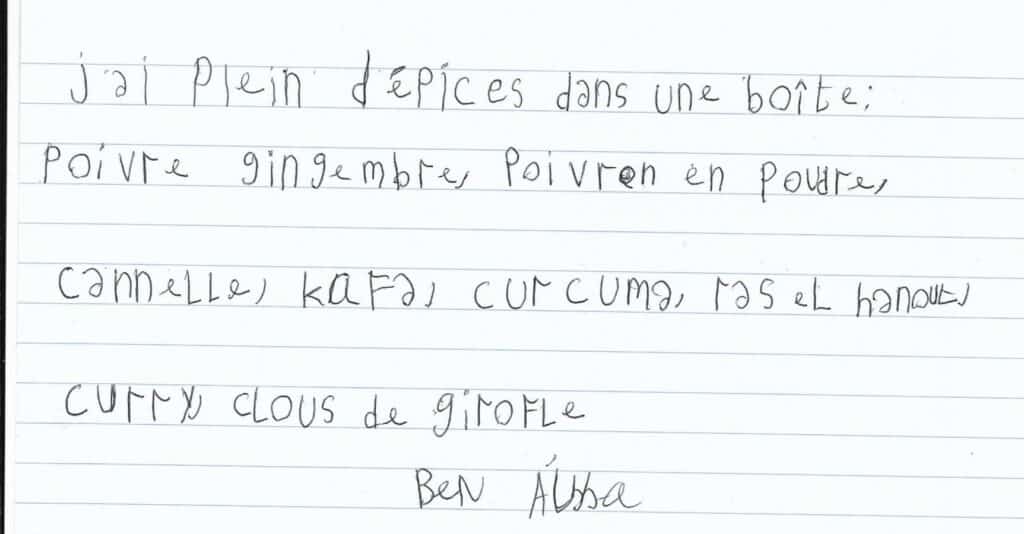 j'ai plein d'épices dans une boîte:
poivre gingembre, poivron en poudre,
cannelle, kafa, curcuma, ras el hanout,
curry, clous de girofle
Ben